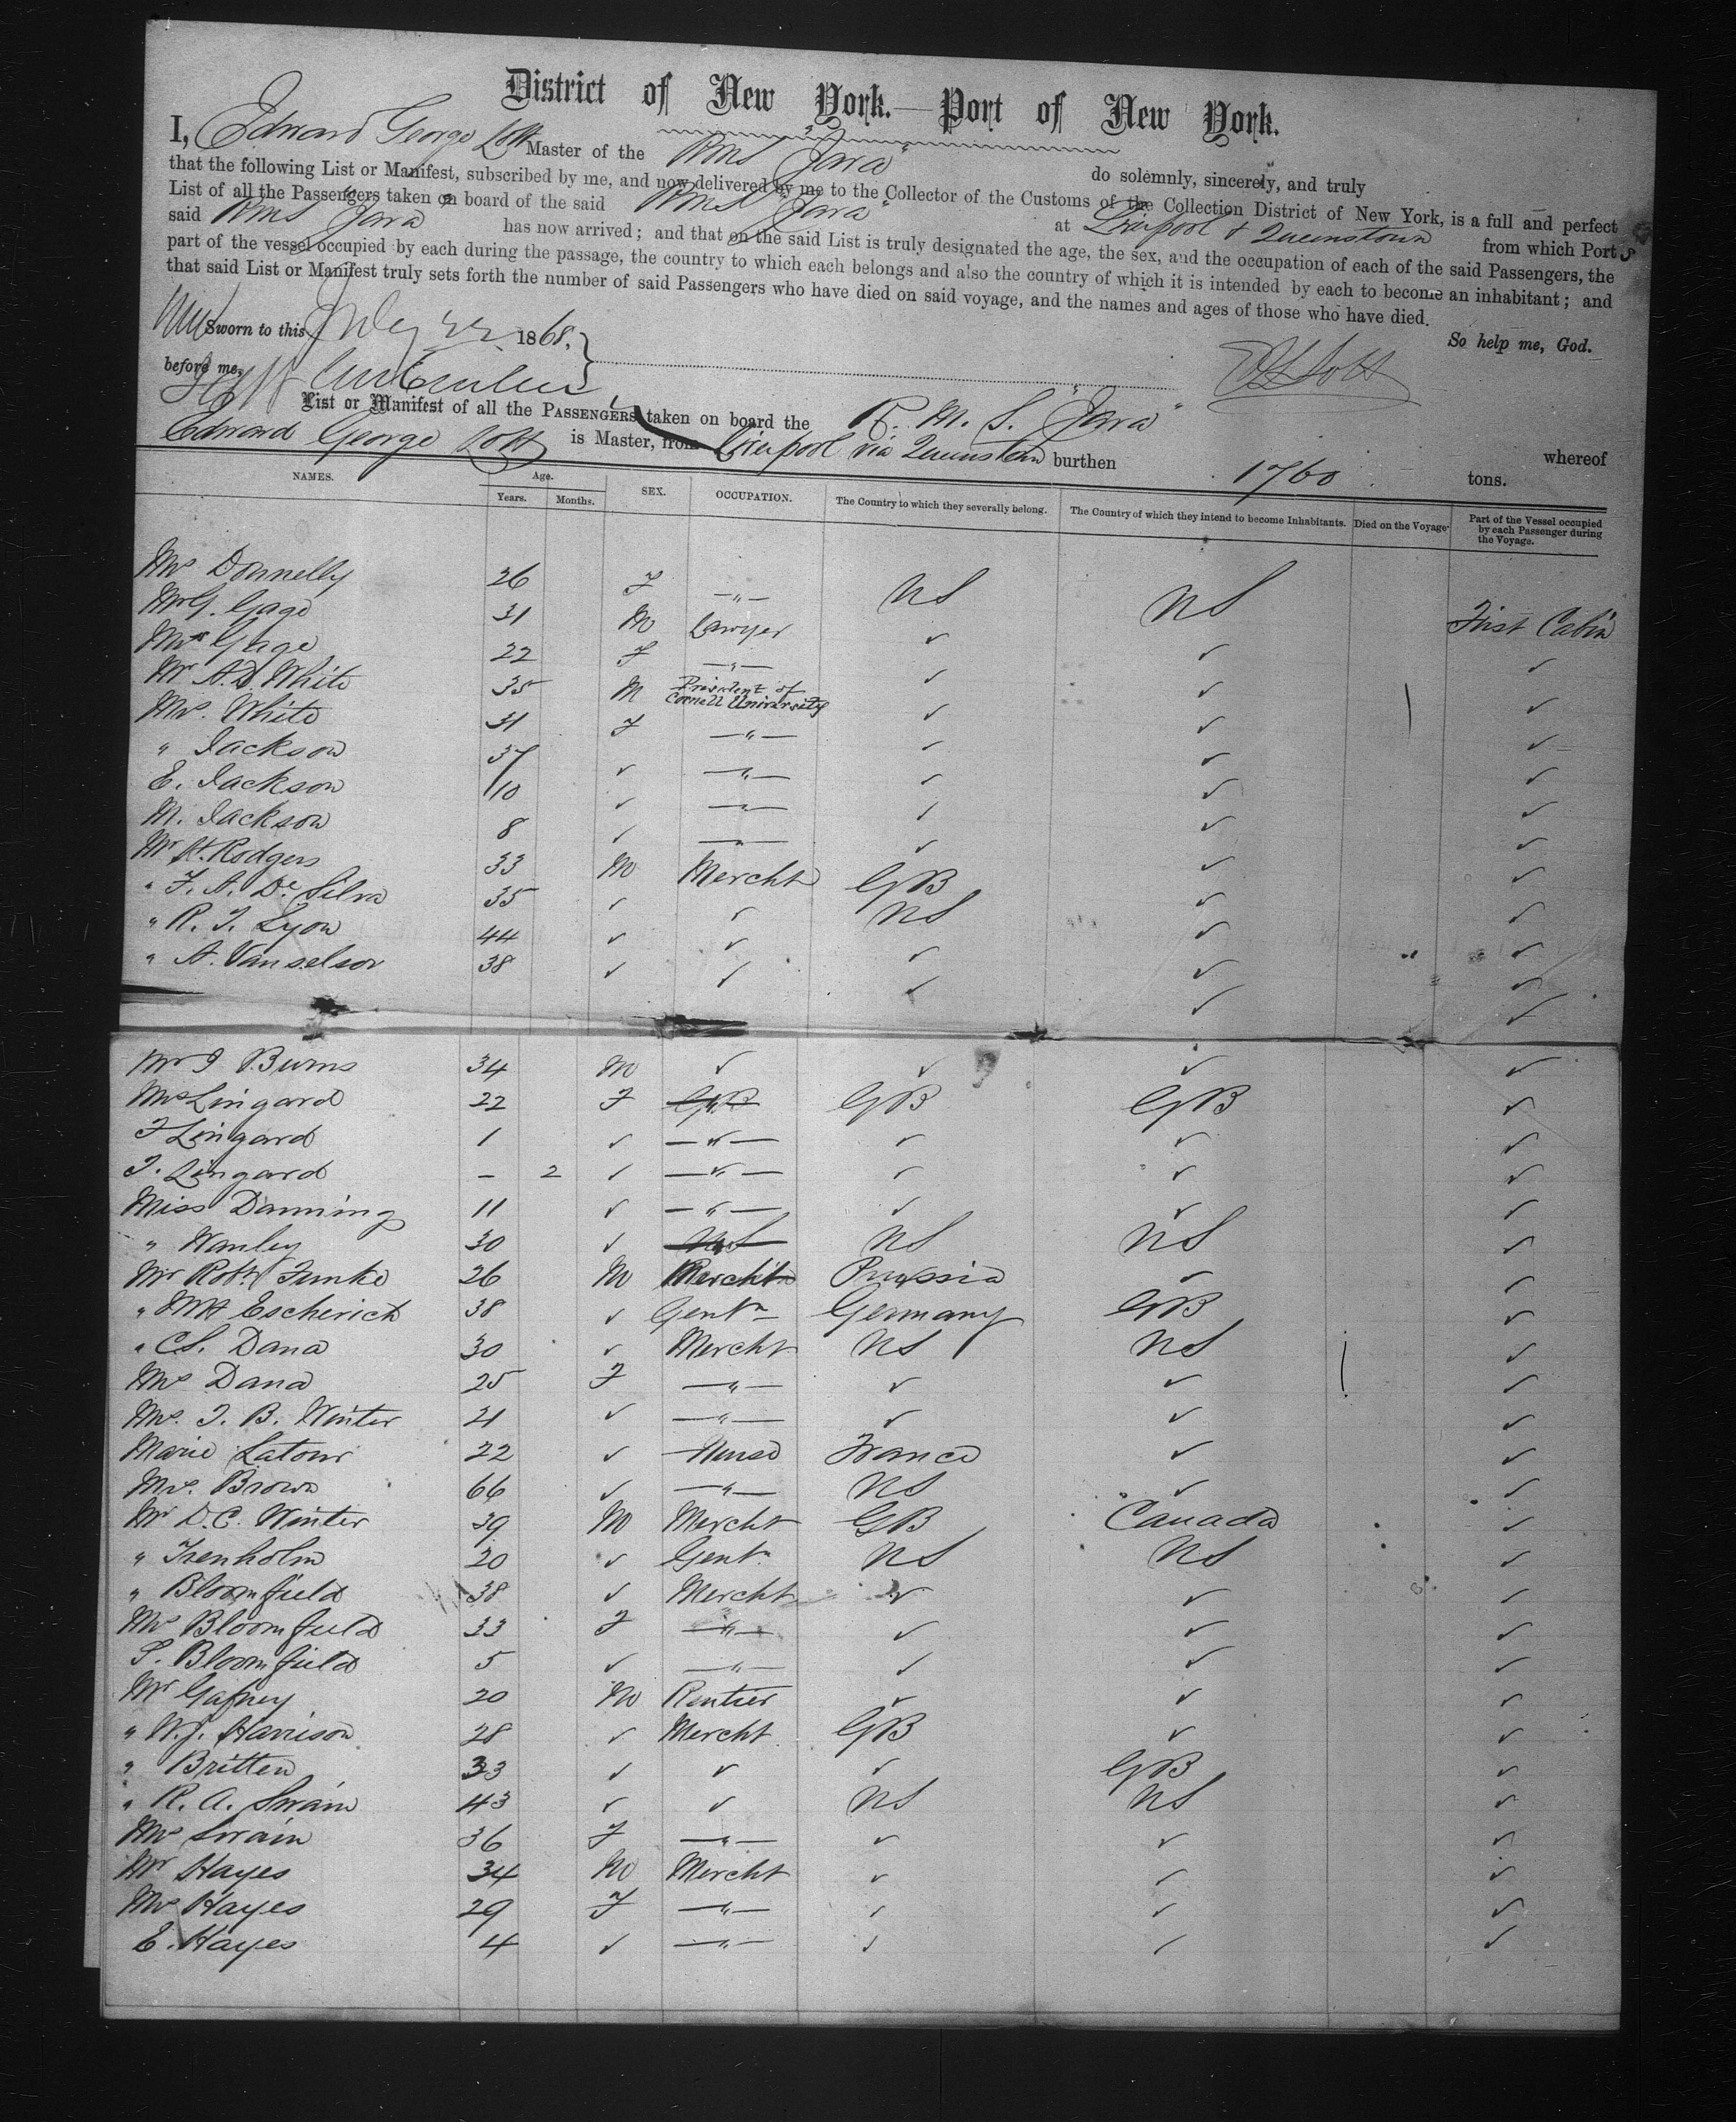 District of New York.—Port of New York.
I, Edward George Lott Master of the RMS "Java" do solemnly, sincerely, and truly
that the following List or Manifest, subscribed by me, and now delivered by me to the Collector of the Customs of the Collection District of New York, is a full and perfect
List of all the Passengers taken on board of the said RMS "Java" at Liverpool & Queenstown from which Ports
said RMS "Java" has now arrived; and that on the said List is truly designated the age, the sex, and the occupation of each of the said Passengers, the
part of the vessel occupied by each during the passage, the country to which each belongs and also the country of which it is intended by each to become an inhabitant; and
that said List or Manifest truly sets forth the number of said Passengers who have died on said voyage, and the names and ages of those who have died.
So help me, God.
Sworn to this July 22 1868, EG Lott
before me,
List or Manifest of all the PASSENGERS taken on board the R. M. S. "Java" whereof
Edward George Lott is Master, from Liverpool via Queenstown burthen 1760 tons.
NAMES. Age. Years. Months. SEX. OCCUPATION. The Country to which they severally belong. The Country of which they intend to become Inhabitants. Died on the Voyage. Part of the Vessel occupied by each Passenger during the Voyage.
Mrs Donnelly 26 F —"— US US First Cabin
Mr G. Gage 31 M Lawyer ✓ ✓ ✓
Mrs Gage 22 F —"— ✓ ✓ ✓
Mr A. D. White 35 M President of Cornell University ✓ ✓ ✓
Mrs. White 31 F —"— ✓ ✓ ✓
" Jackson 37 ✓ —"— ✓ ✓ ✓
E. Jackson 10 ✓ —"— ✓ ✓ ✓
M. Jackson 8 ✓ —"— ✓ ✓ ✓
Mr H. Rodgers 33 M Mercht GB ✓ ✓
" F. A. De Silva 35 ✓ ✓ US ✓ ✓
" R. T. Lyon 44 ✓ ✓ ✓ ✓ ✓
" A. Vanselsor 38 ✓ ✓ ✓ ✓ ✓
Mr J Burns 34 M ✓ ✓ ✓ ✓
Mrs Lingard 22 F —"— GB GB ✓
F Lingard 1 ✓ —"— ✓ ✓ ✓
T. Lingard – 2 ✓ —"— ✓ ✓ ✓
Miss Danning 11 ✓ —"— ✓ ✓ ✓
" Wanley 30 ✓ —"— US US ✓
Mr Robt Funke 26 M Mercht Prussia ✓ ✓
" Escherich 38 ✓ Gentn Germany GB ✓
" C S. Dana 30 ✓ Mercht US US ✓
Mrs Dana 25 F —"— ✓ ✓ ✓
Mrs. J. B. Winter 21 ✓ —"— ✓ ✓ ✓
Marie Latour 22 ✓ Nurse France ✓ ✓
Mrs. Brown 66 ✓ —"— US ✓ ✓
Mr D. C. Winter 39 M Mercht GB Canada ✓
" Trenholm 20 ✓ Gentn US US ✓
" Bloomfield 38 ✓ Mercht ✓ ✓ ✓
Mrs Bloomfield 33 F —"— ✓ ✓ ✓
S. Bloomfield 5 ✓ —"— ✓ ✓ ✓
Mr Gafney 20 M Rentier ✓ ✓ ✓
" W. J. Harrison 28 ✓ Mercht GB ✓ ✓
" Britten 33 ✓ ✓ ✓ GB ✓
" R. A. Swain 43 ✓ ✓ US US ✓
Mrs Swain 36 F —"— ✓ ✓ ✓
Mr Hayes 34 M Mercht ✓ ✓ ✓
Mrs Hayes 29 F —"— ✓ ✓ ✓
E. Hayes 4 ✓ —"— ✓ ✓ ✓